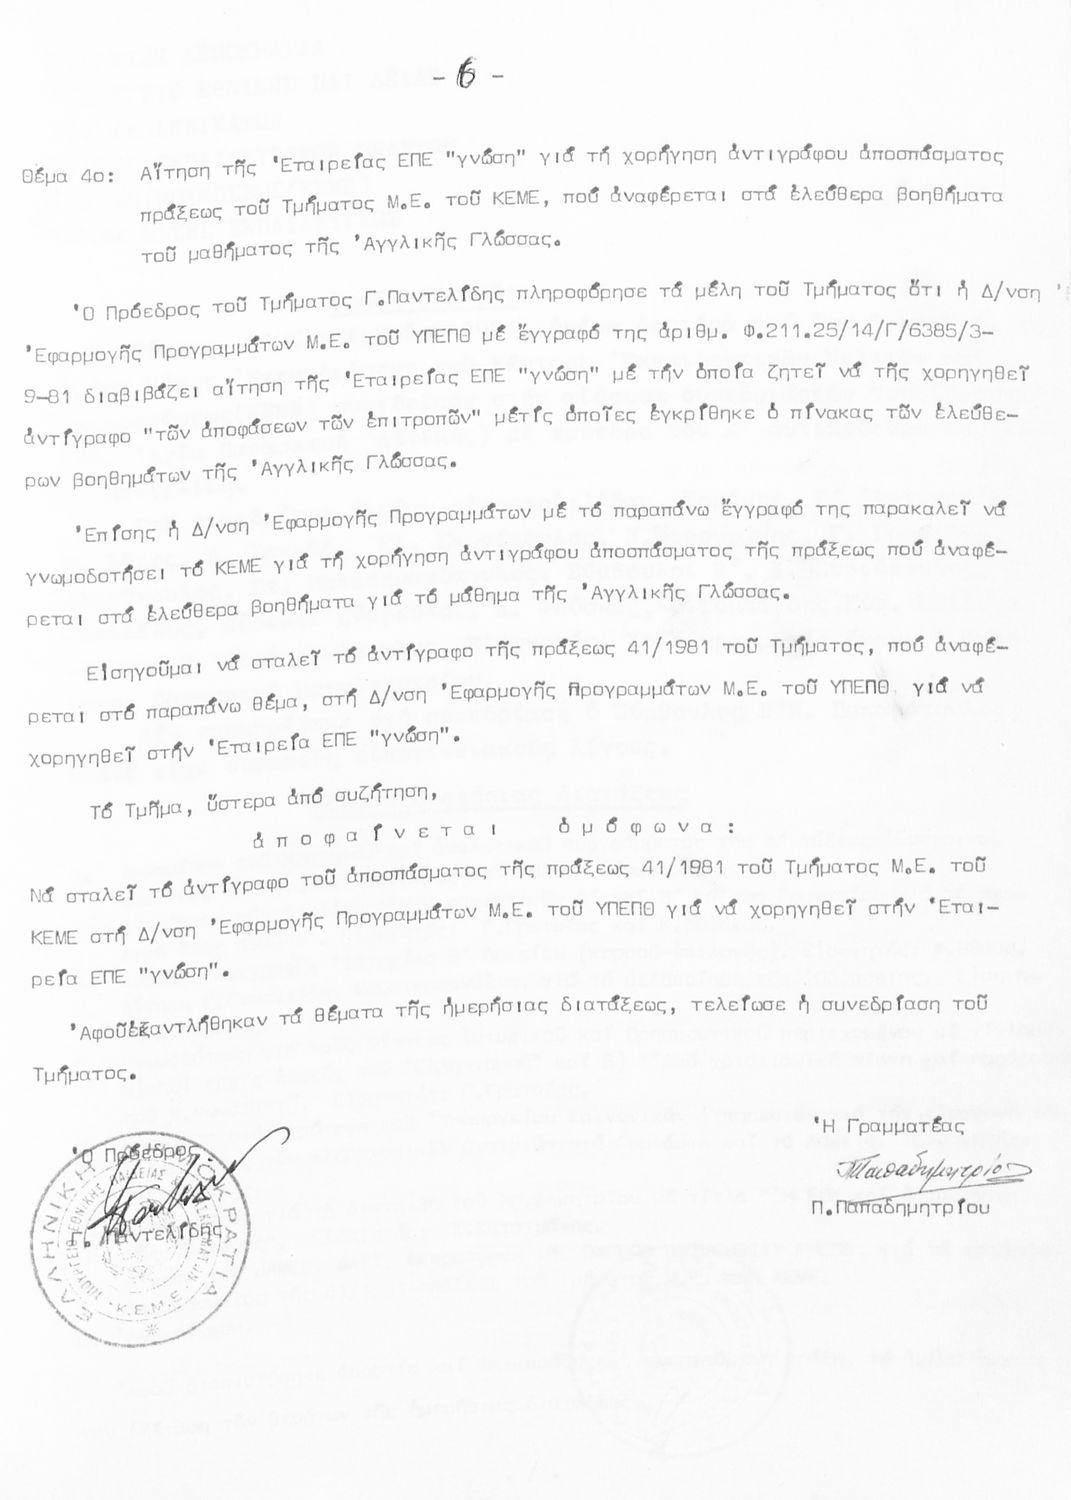 - 6 -
Θέμα 4ο: Αἴτηση τῆς Ἑταιρείας ΕΠΕ "γνώση" γιά τή χορήγηση ἀντιγράφου ἀποσπάσματος
πράξεως τοῦ Τμήματος Μ.Ε. τοῦ ΚΕΜΕ, πού ἀναφέρεται στά ἐλεύθερα βοηθήματα
τοῦ μαθήματος τῆς Ἀγγλικῆς Γλώσσας.
Ὁ Πρόεδρος τοῦ Τμήματος Γ.Παντελίδης πληροφόρησε τά μέλη τοῦ Τμήματος ὅτι ἡ Δ/νση
Ἐφαρμογῆς Προγραμμάτων Μ.Ε. τοῦ ΥΠΕΠΘ μέ ἔγγραφό της ἀριθμ. Φ.211.25/14/Γ/6385/3-
9-81 διαβιβάζει αἴτηση τῆς Ἑταιρείας ΕΠΕ "γνώση" μέ τήν ὁποία ζητεῖ νά τῆς χορηγηθεῖ
ἀντίγραφο "τῶν ἀποφάσεων τῶν ἐπιτροπῶν" μέτίς ὁποῖες ἐγκρίθηκε ὁ πίνακας τῶν ἐλεύθε-
ρων βοηθημάτων τῆς Ἀγγλικῆς Γλώσσας.
Ἐπίσης ἡ Δ/νση Ἐφαρμογῆς Προγραμμάτων μέ τό παραπάνω ἔγγραφό της παρακαλεῖ νά
γνωμοδοτήσει τό ΚΕΜΕ γιά τή χορήγηση ἀντιγράφου ἀποσπάσματος τῆς πράξεως πού ἀναφέ-
ρεται στά ἐλεύθερα βοηθήματα γιά τό μάθημα τῆς Ἀγγλικῆς Γλώσσας.
Εἰσηγοῦμαι νά σταλεῖ τό ἀντίγραφο τῆς πράξεως 41/1981 τοῦ Τμήματος, πού ἀναφέ-
ρεται στό παραπάνω θέμα, στή Δ/νση Ἐφαρμογῆς Προγραμμάτων Μ.Ε. τοῦ ΥΠΕΠΘ γιά νά
χορηγηθεῖ στήν Ἑταιρεία ΕΠΕ "γνώση".
Τό Τμῆμα, ὕστερα ἀπό συζήτηση,
ἀ π ο φ α ί ν ε τ α ι ὁ μ ό φ ω ν α :
Νά σταλεῖ τό ἀντίγραφο τοῦ ἀποσπάσματος τῆς πράξεως 41/1981 τοῦ Τμήματος Μ.Ε. τοῦ
ΚΕΜΕ στή Δ/νση Ἐφαρμογῆς Προγραμμάτων Μ.Ε. τοῦ ΥΠΕΠΘ γιά νά χορηγηθεῖ στήν Ἑται-
ρεία ΕΠΕ "γνώση".
Ἀφοῦἐξαντλήθηκαν τά θέματα τῆς ἡμερήσιας διατάξεως, τελείωσε ἡ συνεδρίαση τοῦ
Τμήματος.
Ὁ Πρόεδρος
Γ. Παντελίδης
ΕΛΛΗΝΙΚΗ ΔΗΜΟΚΡΑΤΙΑ
ΥΠΟΥΡΓΕΙΟ ΕΘΝΙΚΗΣ ΠΑΙΔΕΙΑΣ ΚΑΙ ΘΡΗΣΚΕΥΜΑΤΩΝ
Κ.Ε.Μ.Ε.
Ἡ Γραμματέας
Παπαδημητρίου
Π.Παπαδημητρίου